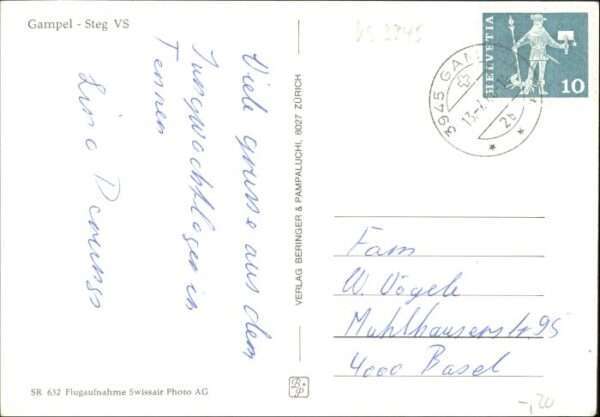 Gampel - Steg VS
VS 3945
Viele grüsse aus dem
Jungwachtlager in
Tennen
Lino
VERLAG BERINGER & PAMPALUCHI, 8027 ZÜRICH
SR 632 Flugaufnahme Swissair Photo AG
B P
HELVETIA
10
3945 GAM
13.
2b
Fam
W. Vögele
Mühlhauserstr. 95
4000 Basel
-,20